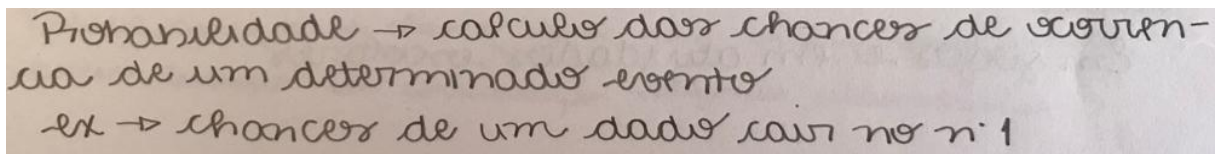 Probabilidade → calculo das chances de ocorren-
cia de um determinado evento
ex → chances de um dado cair no n° 1